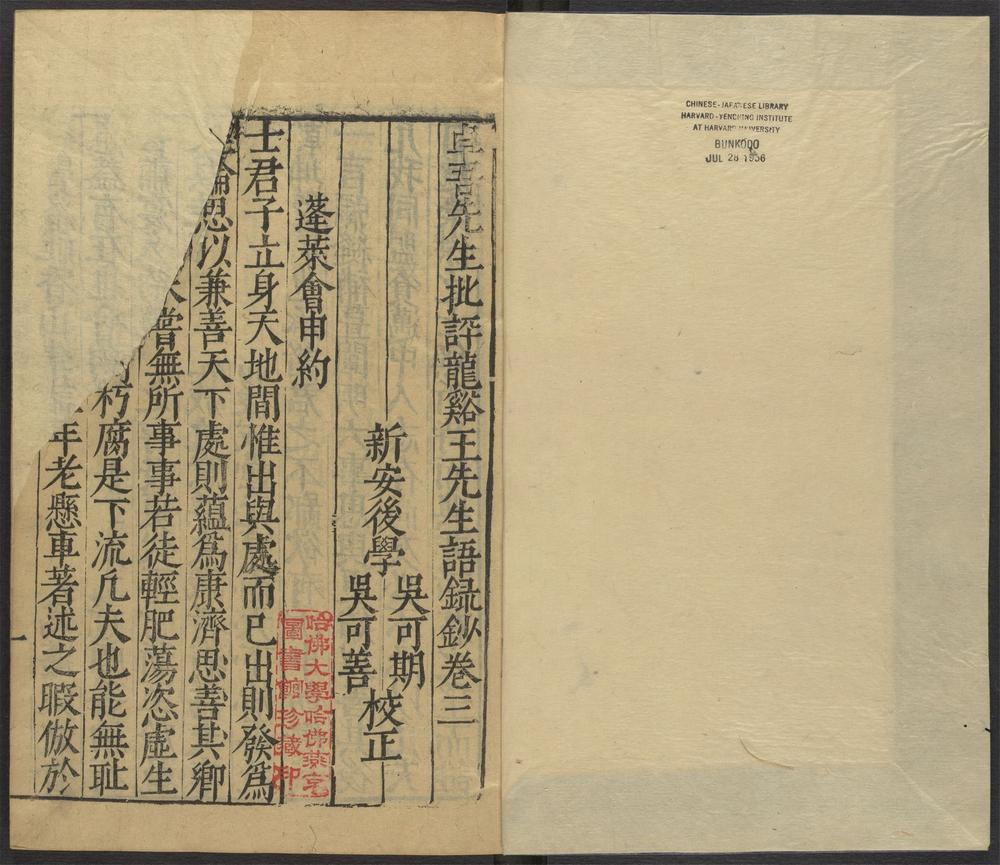 CHINESE-JAPANESE LIBRARY
HARVARD-YENCHING INSTITUTE
AT HARVARD UNIVERSITY
BUNKODO
JUL 28 1936
卓吾先生批評龍谿王先生語録鈔卷三
新安後學
吳可期
吳可善
校正
蓬萊會申約
士君子立身天地間惟出與處而已出則發爲
思以兼善天下處則蘊爲康濟思善其鄉
嘗無所事事若徒輕肥蕩恣虛生
朽腐是下流凡夫也能無耻
年老懸車著述之暇倣於
一
哈佛大學哈佛燕京
圖書館珍藏印